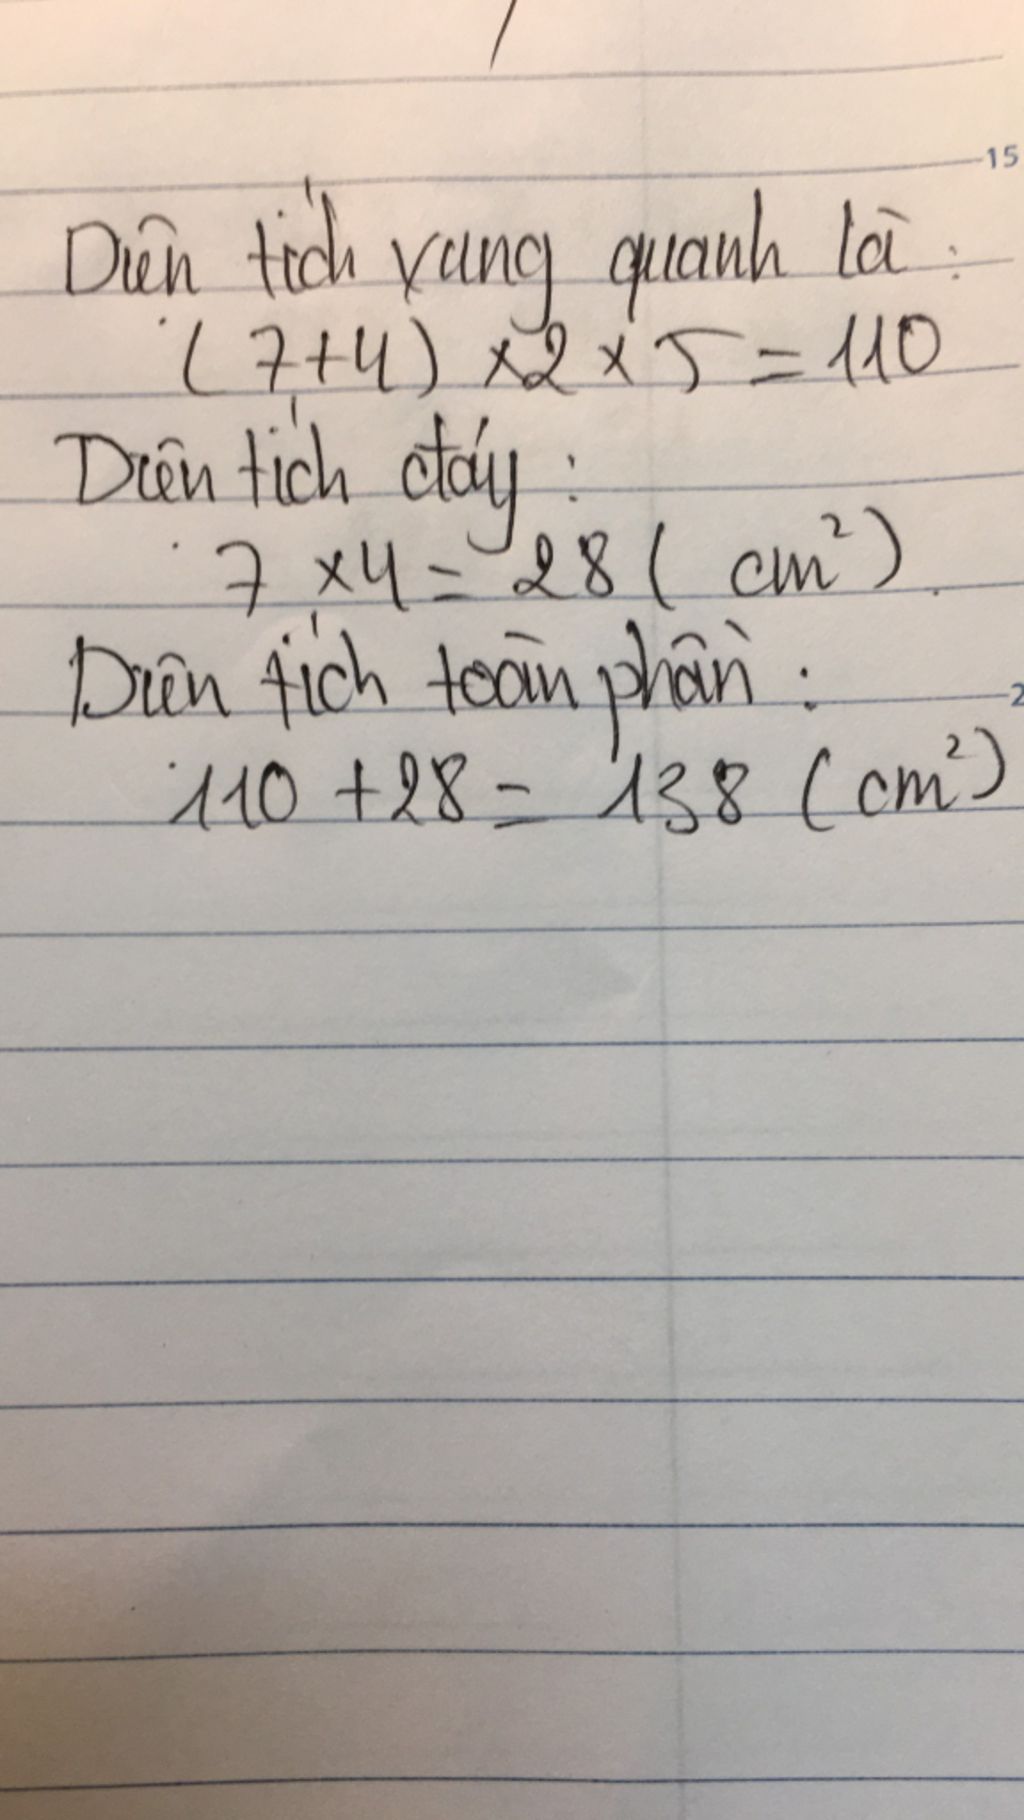 15
Diện tích xung quanh là:
(7+4) x2 x 5 = 110
Diện tích đáy:
7 x4 = 28 ( cm²).
Diện tích toàn phần:
2
110 +28 = 138 (cm²)